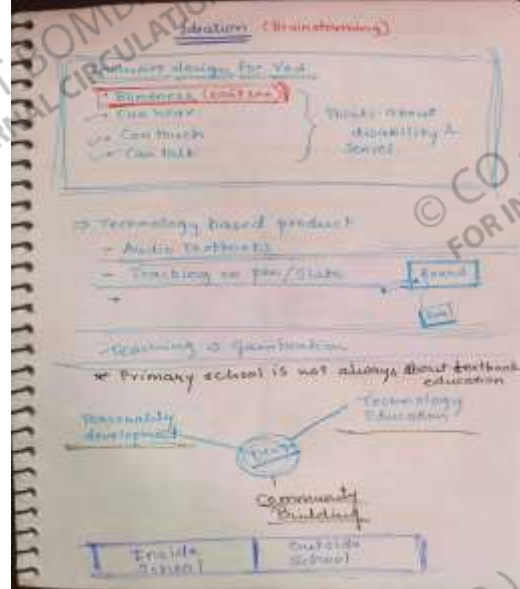 Ideation (Brainstorming)
Inclusive design for Ved
• Blindness
→ Can hear
→ Can touch
→ Can talk
Think about
disability &
senses
→ Technology based product
- Audio textbooks
- Teaching on pen/slate
Board
- Learning
* Primary school is not always about textbook
education
Personality
development
Technology
Education
Community
Building
Inside
School
Outside
School
© CO
FOR IN